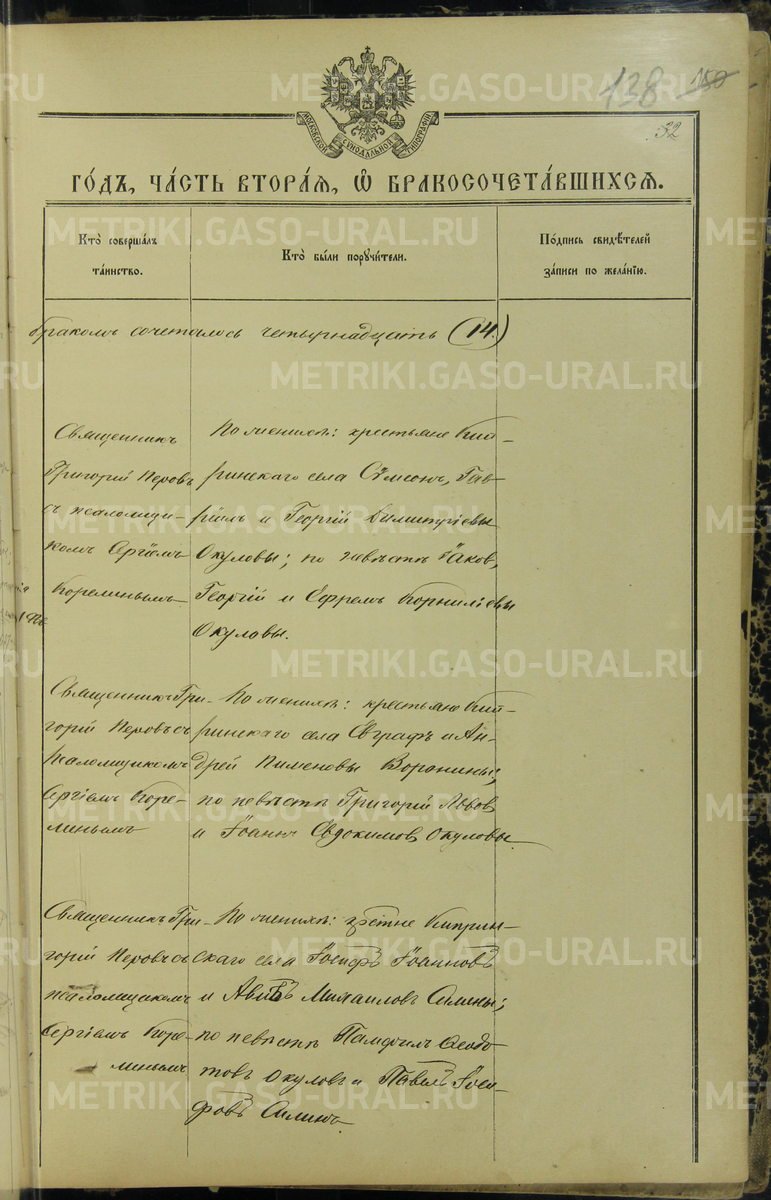 138 150
52
МОСКОВСКОЙ СѴНОДАЛЬНОЙ ТИПОГРАФІИ
ГО́ДЪ, ЧА́СТЬ ВТОРА́Я, Ѽ БРАКОСОЧЕТА́ВШИХСЯ.
Кто̀ соверша́лъ
та́инство.
Кто̀ бы́ли порꙋчи́тели.
По́дпись свидѣ́телей
за́писи по жела́нїю.
бракомъ сочеталось четырнадцать (14.)
Священникъ
Григорій Перовъ
съ псаломщи-
комъ Сергіемъ
Кореминымъ
По женихѣ: крестьяне Кип-
ринскаго села Сѵмеонъ, Гав-
ріилъ и Георгій Димитріевы
Окуловы; по невѣстѣ Іаков,
Георгій и Ефремъ Корниліевы
Окуловы.
Священникъ Гри-
горій Перовъ съ
псаломщикомъ
Сергіемъ Коре-
минымъ
По женихѣ: крестьяне Кип-
ринскаго села Евграфъ и Ан-
дрей Пименовы Воронины;
по невѣстѣ Григорій Львов
и Іоаннъ Евдокимов Окуловы
Священникъ Гри-
горій Перовъ съ
псаломщикомъ
Сергіемъ Коре-
минымъ
По женихѣ: крестне Киприн-
скаго села Іосифъ Іоанновъ
и Авивъ Михаилов Силины;
по невѣстѣ Памфилъ Ѳеодо
товъ Окуловъ и Павелъ Іоси-
фовъ Силинъ.
METRIKI.GASO-URAL.RU